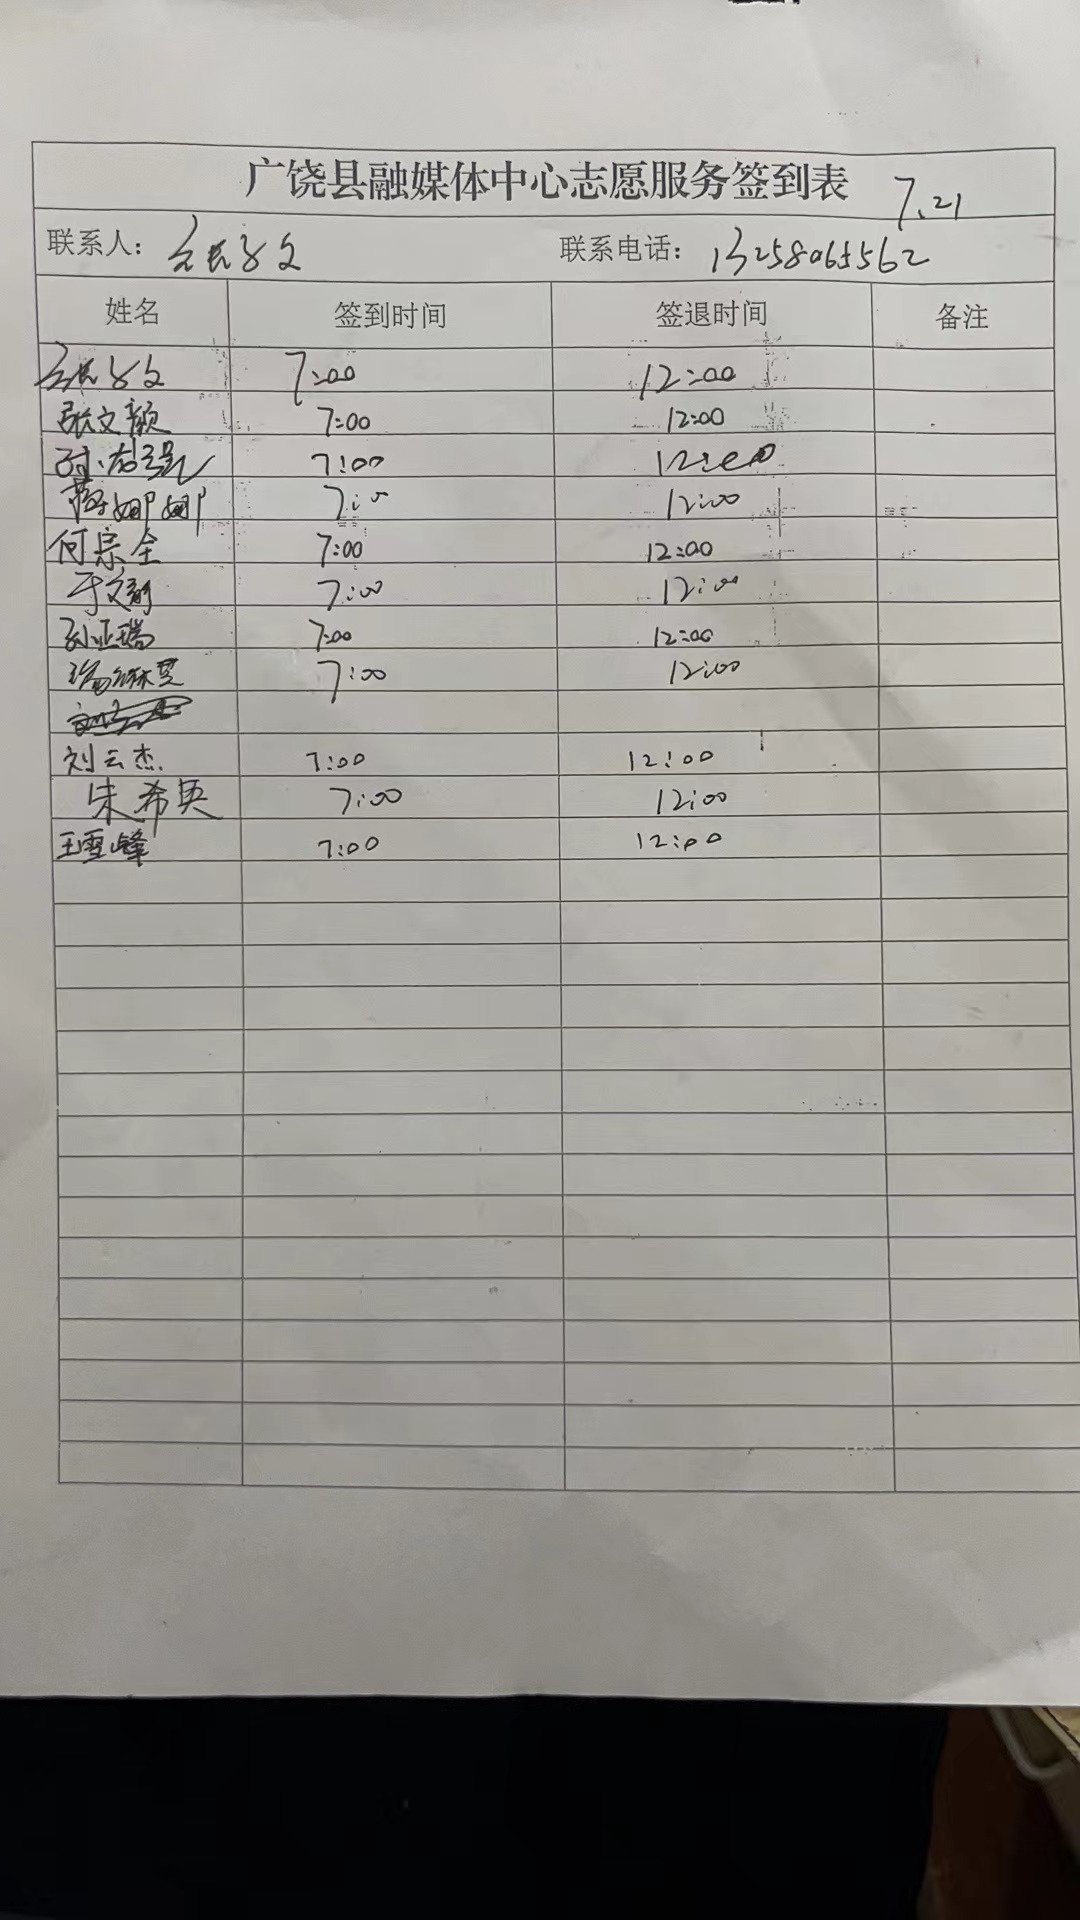 广饶县融媒体中心志愿服务签到表 7.21
联系人： 联系电话：13258065562
姓名 签到时间 签退时间 备注
7:00 12:00
张文颖 7:00 12:00
7:00 12:00
薛娜娜 7:00 12:00
何宗全 7:00 12:00
于文静 7:00 12:00
孙亚瑞 7:00 12:00
7:00 12:00
刘云杰 7:00 12:00
朱希英 7:00 12:00
王雪峰 7:00 12:00